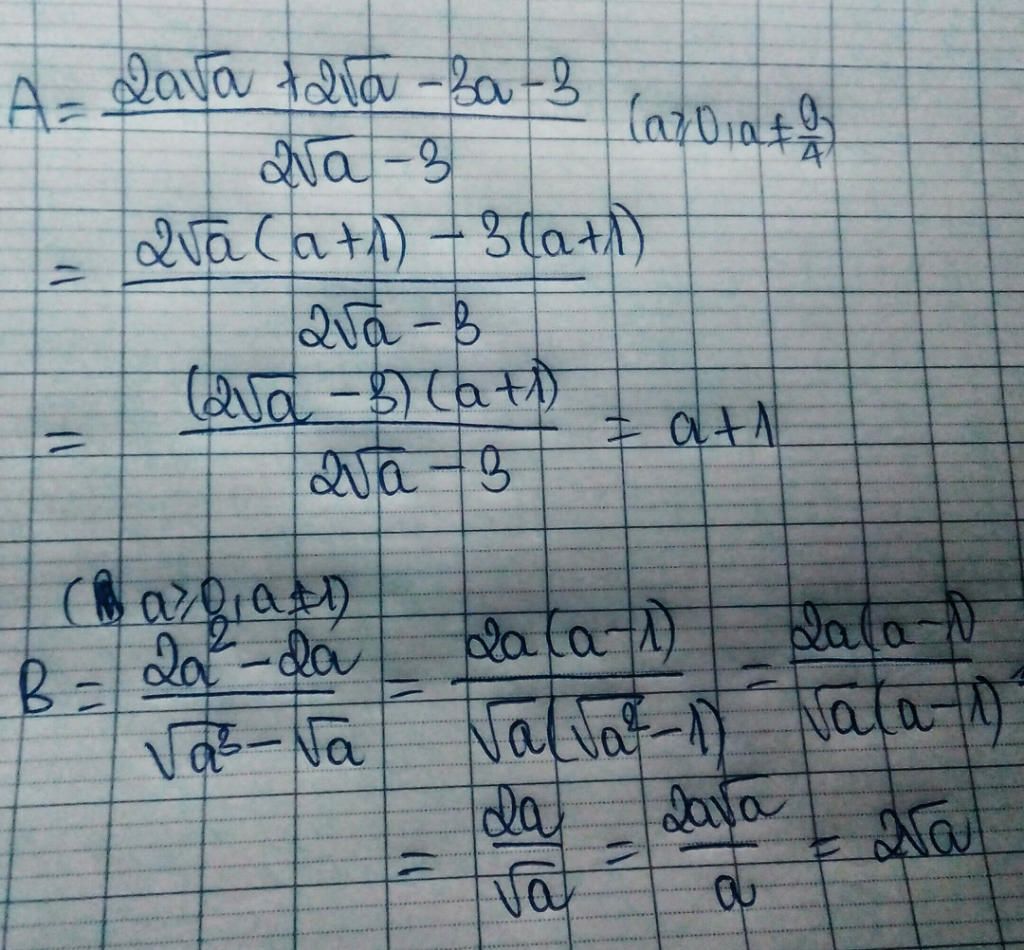 A = \frac{2a\sqrt{a} + 2\sqrt{a} - 3a - 3}{2\sqrt{a} - 3} (a ≥ 0, a ≠ \frac{9}{4})
= \frac{2\sqrt{a}(a+1) - 3(a+1)}{2\sqrt{a} - 3}
= \frac{(2\sqrt{a} - 3)(a+1)}{2\sqrt{a} - 3} = a + 1
(a ≥ 0, a ≠ 1)
B = \frac{2a^2 - 2a}{\sqrt{a^3} - \sqrt{a}} = \frac{2a(a-1)}{\sqrt{a}(\sqrt{a^2} - 1)} = \frac{2a(a-1)}{\sqrt{a}(a-1)}
= \frac{2a}{\sqrt{a}} = \frac{2a\sqrt{a}}{a} = 2\sqrt{a}